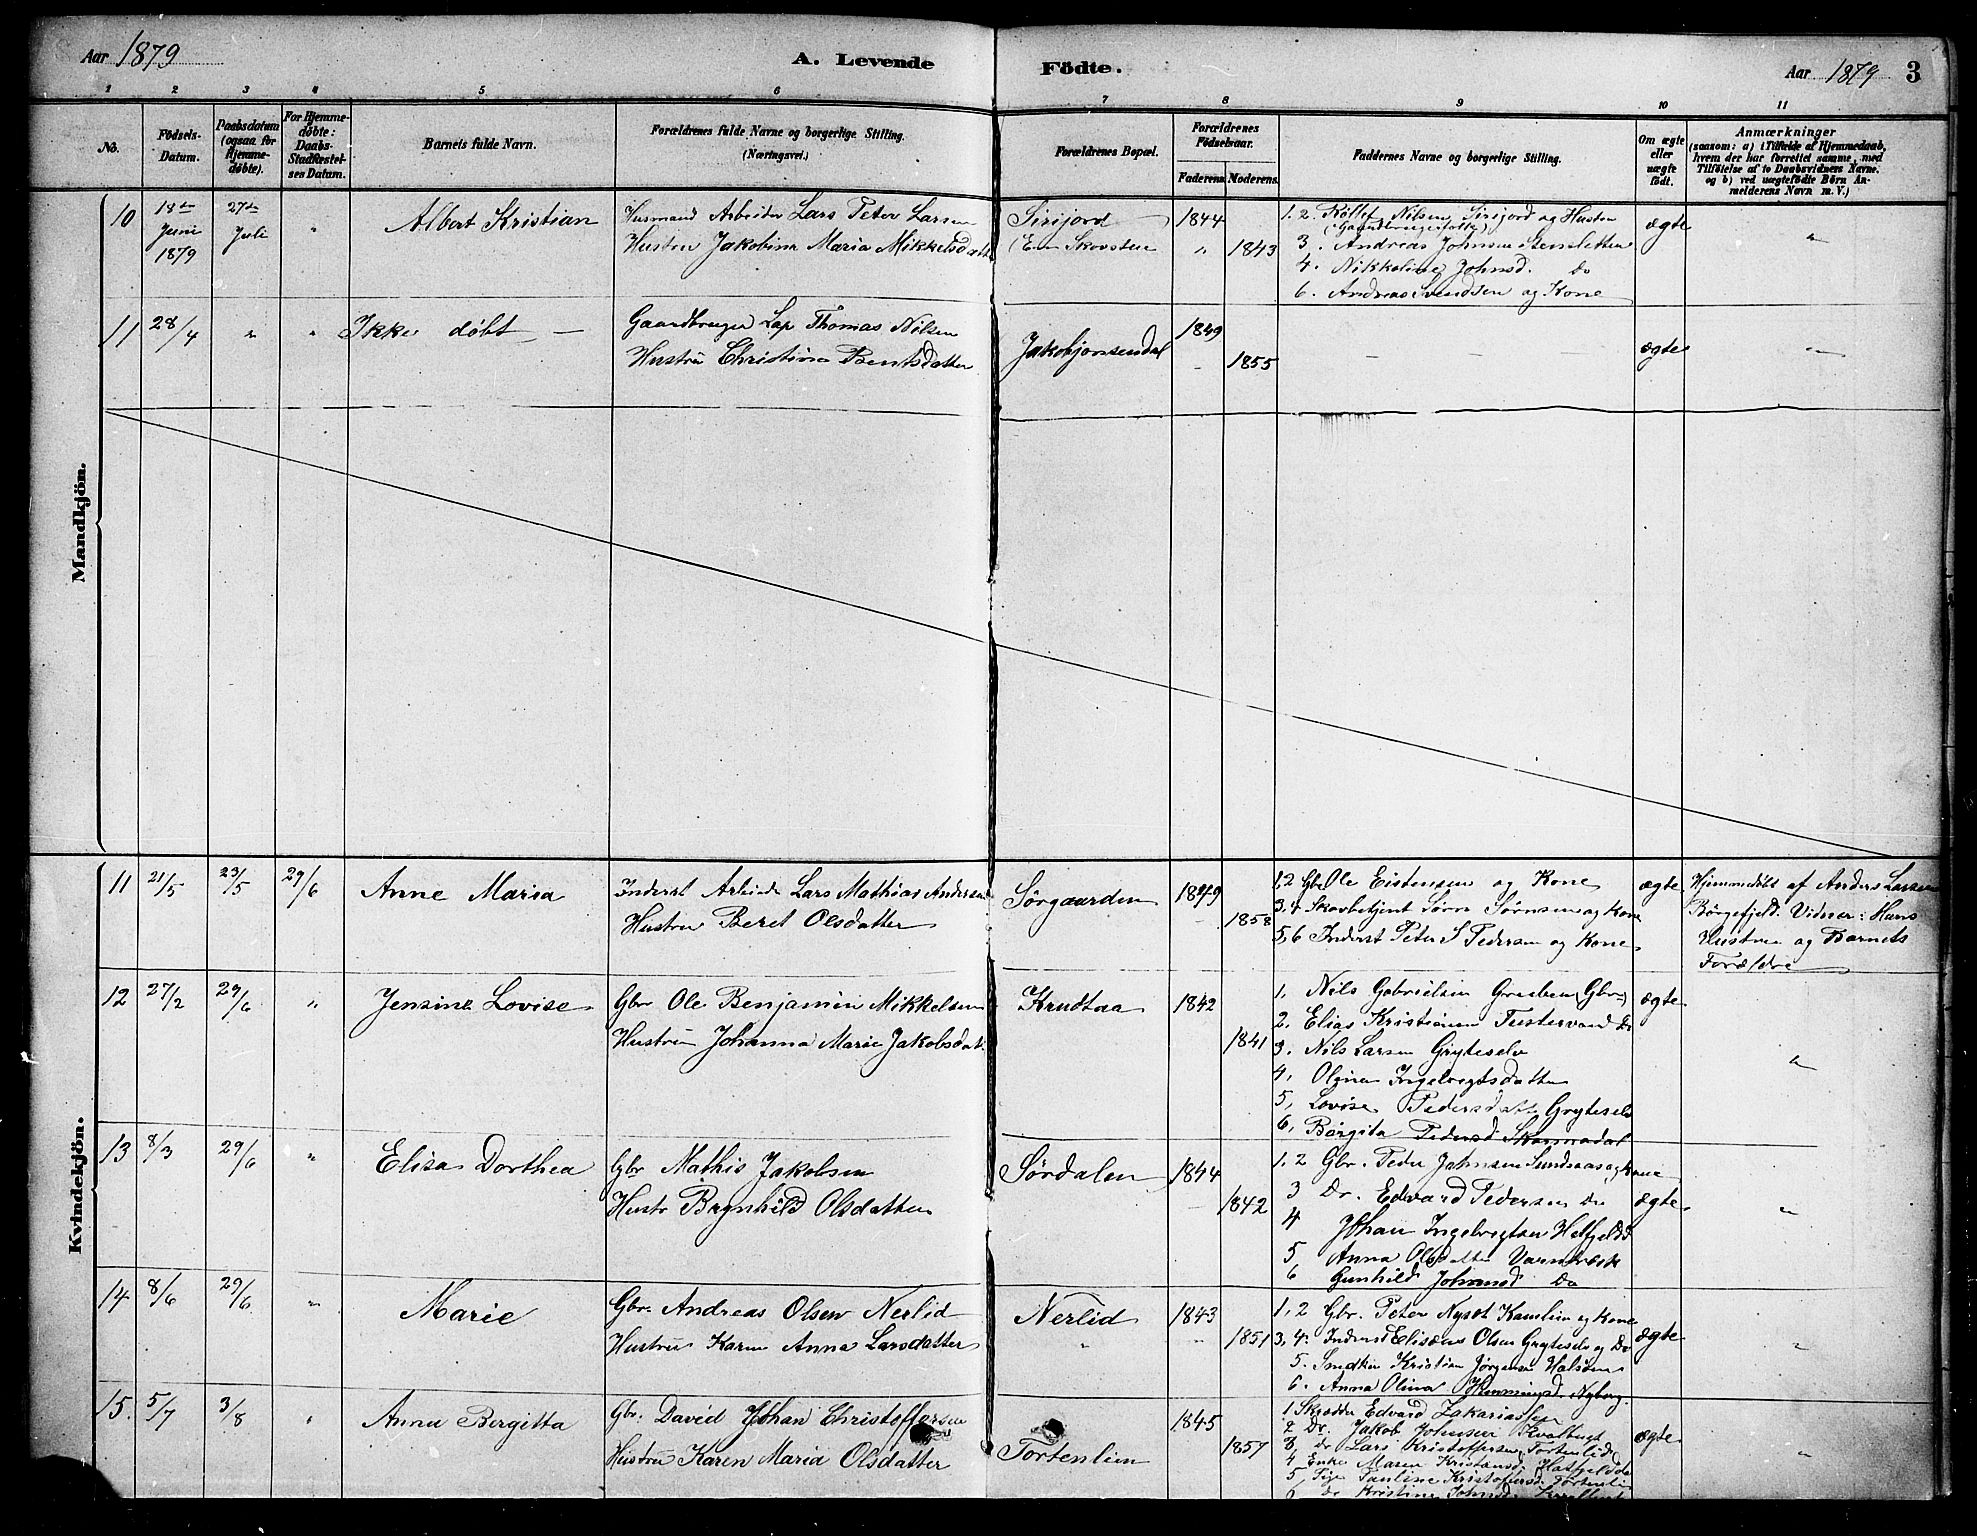 Aar 1879
A. Levende Födte.
Aar 1879 3
1 2 3 4 5 6 7 8 9 10 11
No.
Födsels-Datum.
Daabsdatum (ogsaa for Hjemme-døbte).
For Hjemme-døbte: Daabs-Stadfæstel-ses Datum.
Barnets fulde Navn.
Forældrenes fulde Navne og borgerlige Stilling.
(Næringsvei.)
Forældrenes Bopæl.
Forældrenes Födselsaar.
Faderens. Moderens.
Faddernes Navne og borgerlige Stilling.
Om ægte eller uægte födt.
Anmærkninger
(saasom: a) i Tilfælde af Hjemmedaab,
hvem der har forrettet samme, med
Tilføielse af to Daabsvidners Navne.
og b) ved uægtefødte Börn An-
melderens Navn m. V.)
Mandkjön.
10 18de Juni 1879 27de Juli " Albert Kristian
Husmand Arbeider Lars Peter Larsen
Hustru Jakobine Maria Mikkelsdatt
Sirijord
1844
" 1843
1. 2. Nilsen, Sirijord og Hustru
3. Andreas Johnsen
4. Nikkoline Johnsd. do
6. Andreas Svendsen og Kone
ægte "
11 28/4 " " Ikke døbt —
Gaardbruger Lap Thomas Nilsen
Hustru Christine Bentsdatter
Jakobjonsendal
1849
- 1855
- - -
ægte "
Kvindekjön.
11 21/5 23/5 29/6 Anne Maria
Inderst Arbeider Lars Mathias Andersen
Hustru Beret Olsdatter
Sørgaarden
1849
1858
1,2 Gbr Ole Eistensen og Kone
3,4 Skovbetjent Sørn Sørnsen og Kone
5,6 Inderst Peter S Pedersen og Kone
ægte
Hjemmedøbt af Anders Larsen
Børgefjeld. Vidner: Hans
Hustru og Barnets
Forældre
12 27/2 29/6 " Jensine Lovise
Gbr Ole Benjamin Mikkelsen
Hustru Johanna Marie Jakobsdat.
Krudtaa
1842
1841
1, Nils Gabrielsen Gbr
2. Elias Kristiansen Tustervand Do
3. Nils Larsen Gryteselv
4, Olina Ingebrigtsdatter
5, Lovise Pedersdatter Gryteselv
6, Børgita Pedersd Skarmodal
ægte "
13 8/3 29/6 " Elisa Dorthea
Gbr Mathis Jakobsen
Hustr Brynhild Olsdatter
Sørdalen
1844
1842
1, 2 Gbr. Peder Johnsen Sundsaas og Kone
3 Do. Edvard Pedersen Do
4 Johan Ingebrigtsen
5 Anna Olsdatter
6 Gunhild Johnsd Do
ægte "
14 8/6 29/6 " Marie
Gbr. Andreas Olsen Nerlid
Hustru Karen Anna Larsdatter
Nerlid
"
1843
" 1851
1, 2 Gbr. Peter og Kone
3, 4. Inderst Elisæus Olsen Gryteselv og Do
5. Kristian Jørgensen
6. Anna Olina Henningsd. Nyberg.
ægte "
15. 5/7 3/8 " Anna Bergitta
Gbr. David Johan Christoffersen
Hustru Karen Maria Olsdatter
Tortenlien
1845
1857
1, Skrædder Edvard Zakariassen
2 Do. Jakob Johnsen
3, Do Lars Kristoffersen Tortenlid
4 Enke Maren Kristensd.
5, Pige Pauline Kristoffersd. Tortenli
6 Do Kristine Johnsd.
ægte "